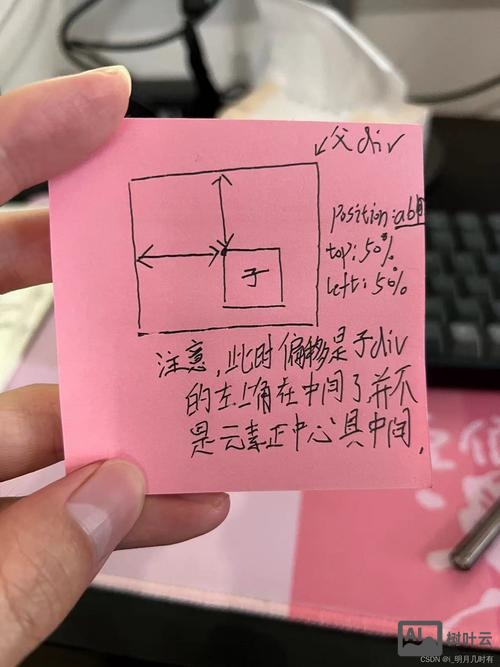 父div
position:ab
top:50%
left:50%
子
注意,此时偏移是子div
的左上角在中间了并不
是元素正中心具中间.
树叶云
CSDN @i_明月几时有